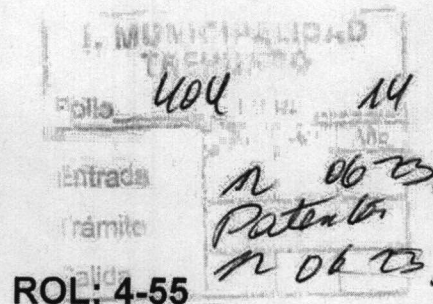 I. MUNICIPALIDAD
Folio 404 14
Año
Entrada 12 06 23
Trámite Patentes
Salida 12 06 23
ROL: 4-55